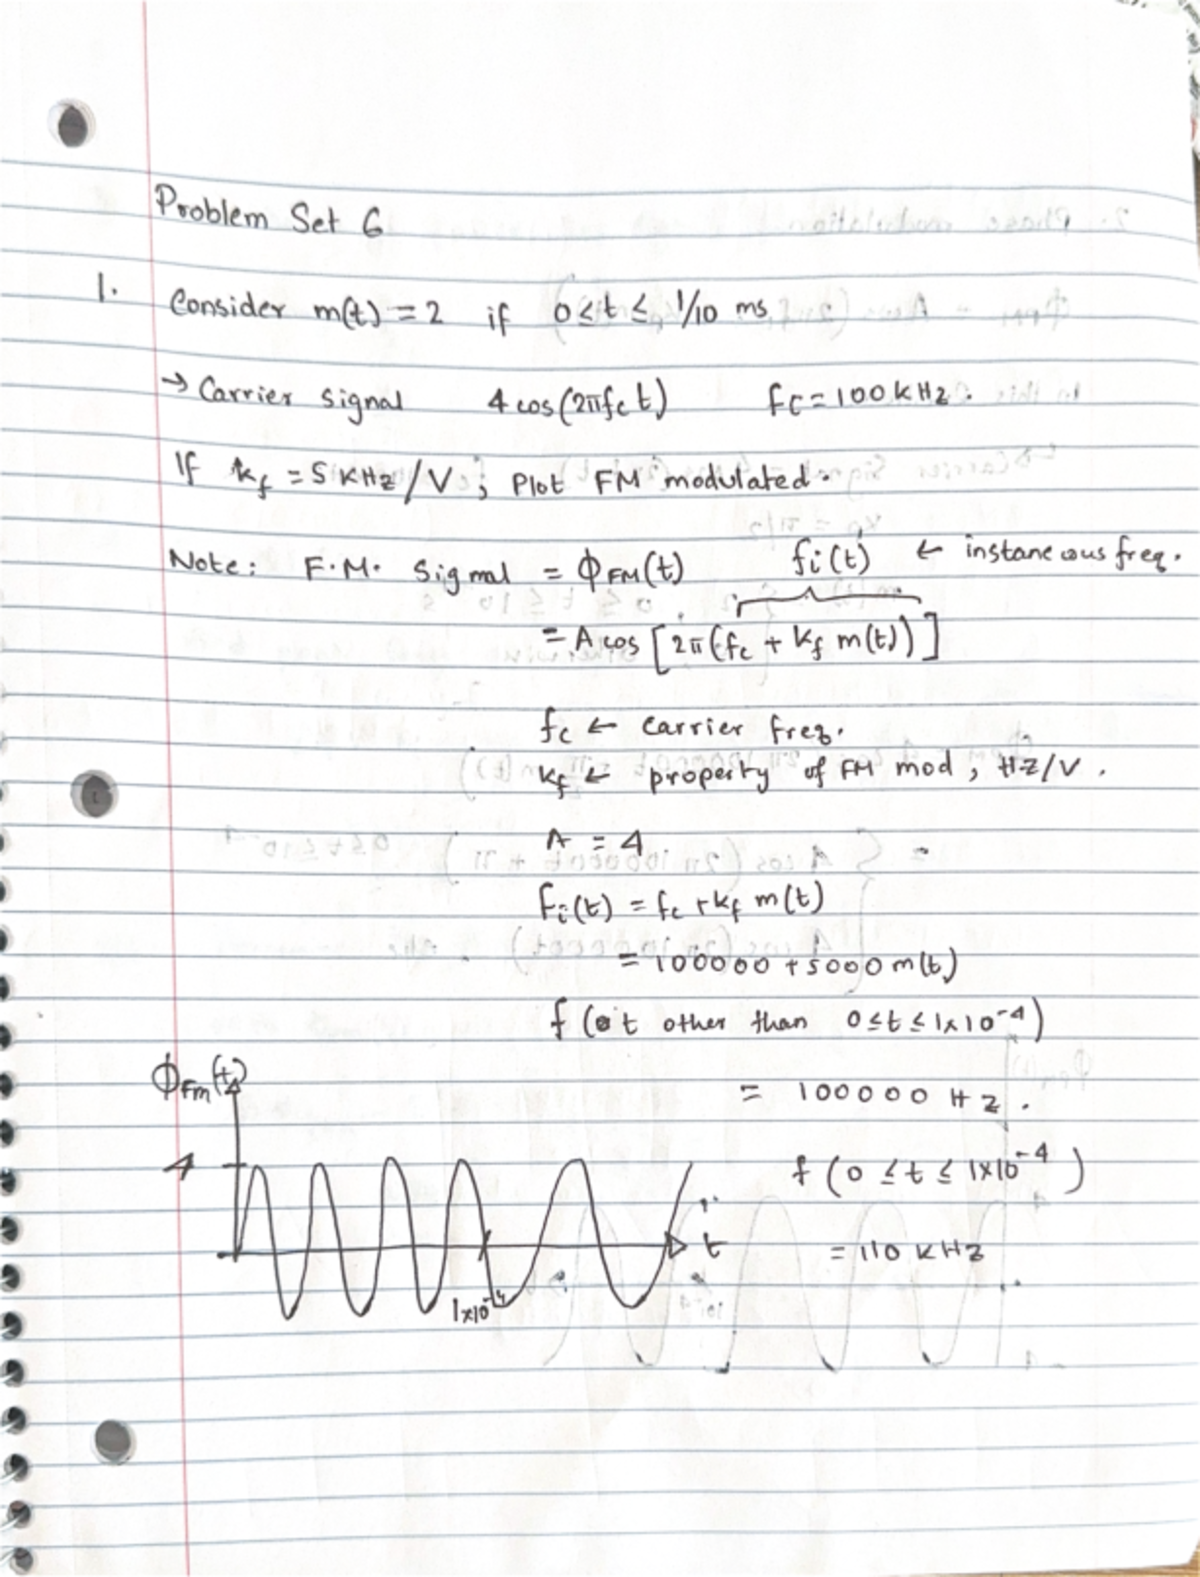 Problem Set 6
1. Consider m(t) = 2 if 0 ≤ t ≤ 1/10 ms
→ Carrier signal 4 cos(2πfc t) fc = 100 kHz.
If kf = 5 KHz/V ; Plot FM modulated.
Note: F.M. Signal = ϕFM(t) fi(t) ← instaneous freq.
= A cos [2π(fc + kf m(t))]
fc ← carrier freq.
kf ← property of FM mod, Hz/V.
A = 4
fi(t) = fc + kf m(t)
= 100000 + 5000 m(t)
f (t other than 0 ≤ t ≤ 1x10-4)
ϕFm(t)
= 100000 Hz.
4
f (0 ≤ t ≤ 1x10-4)
t
= 110 KHz
1x10-4